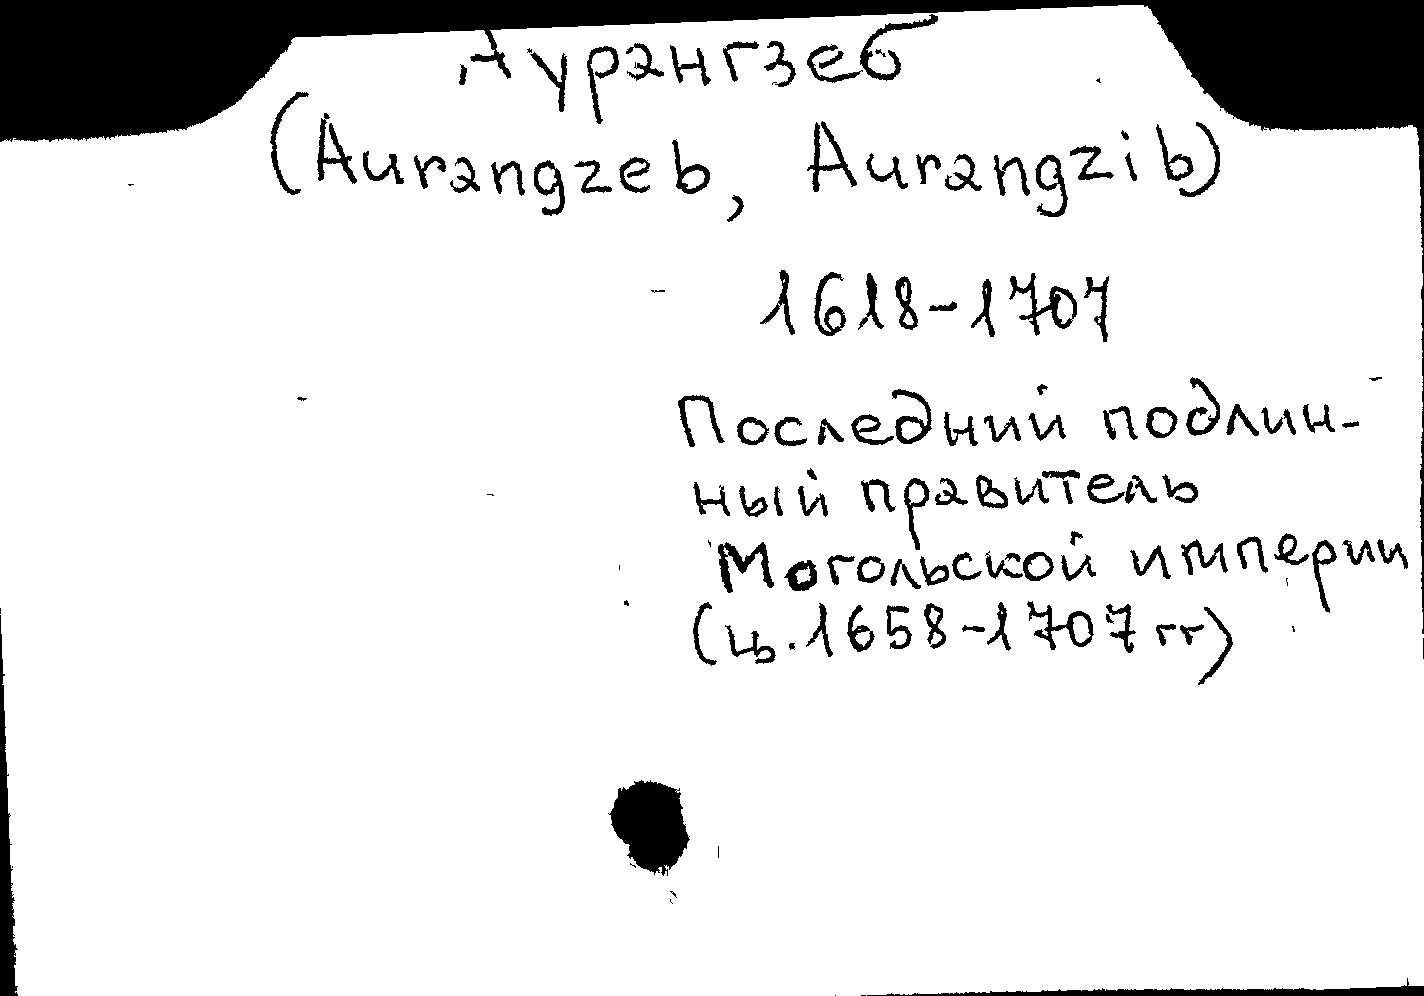 Аурангзеб
(Aurangzeb, Aurangzib)
1618-1707
Последний подлин-
ный правитель
Могольской империи
(ц. 1658-1707 гг)